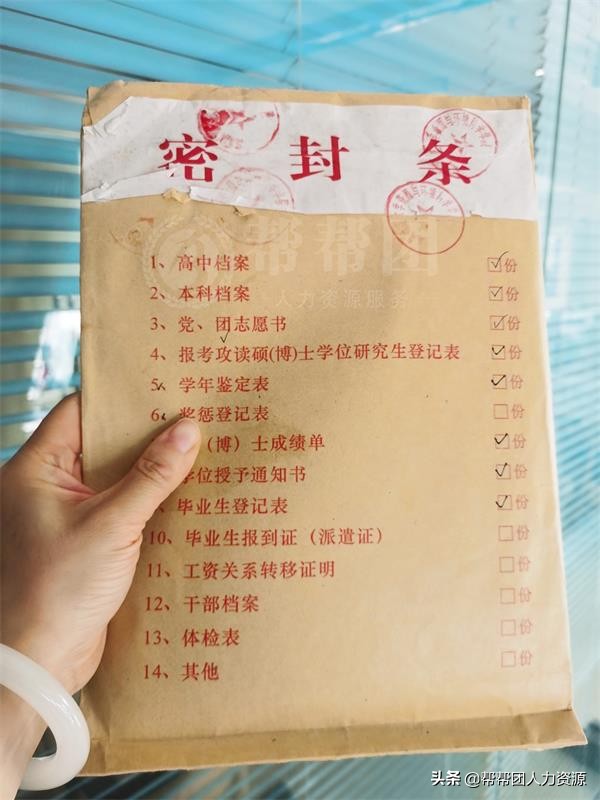 密封条
帮帮团
人力资源服务
1、高中档案 ☑份
2、本科档案 ☑份
3、党、团志愿书 ☑份
4、报考攻读硕(博)士学位研究生登记表 ☑份
5、学年鉴定表 ☑份
6、奖惩登记表 □份
(博)士成绩单 ☑份
学位授予通知书 ☑份
、毕业生登记表 ☑份
10、毕业生报到证(派遣证) □份
11、工资关系转移证明 □份
12、干部档案 □份
13、体检表 □份
14、其他 □份
头条 @帮帮团人力资源